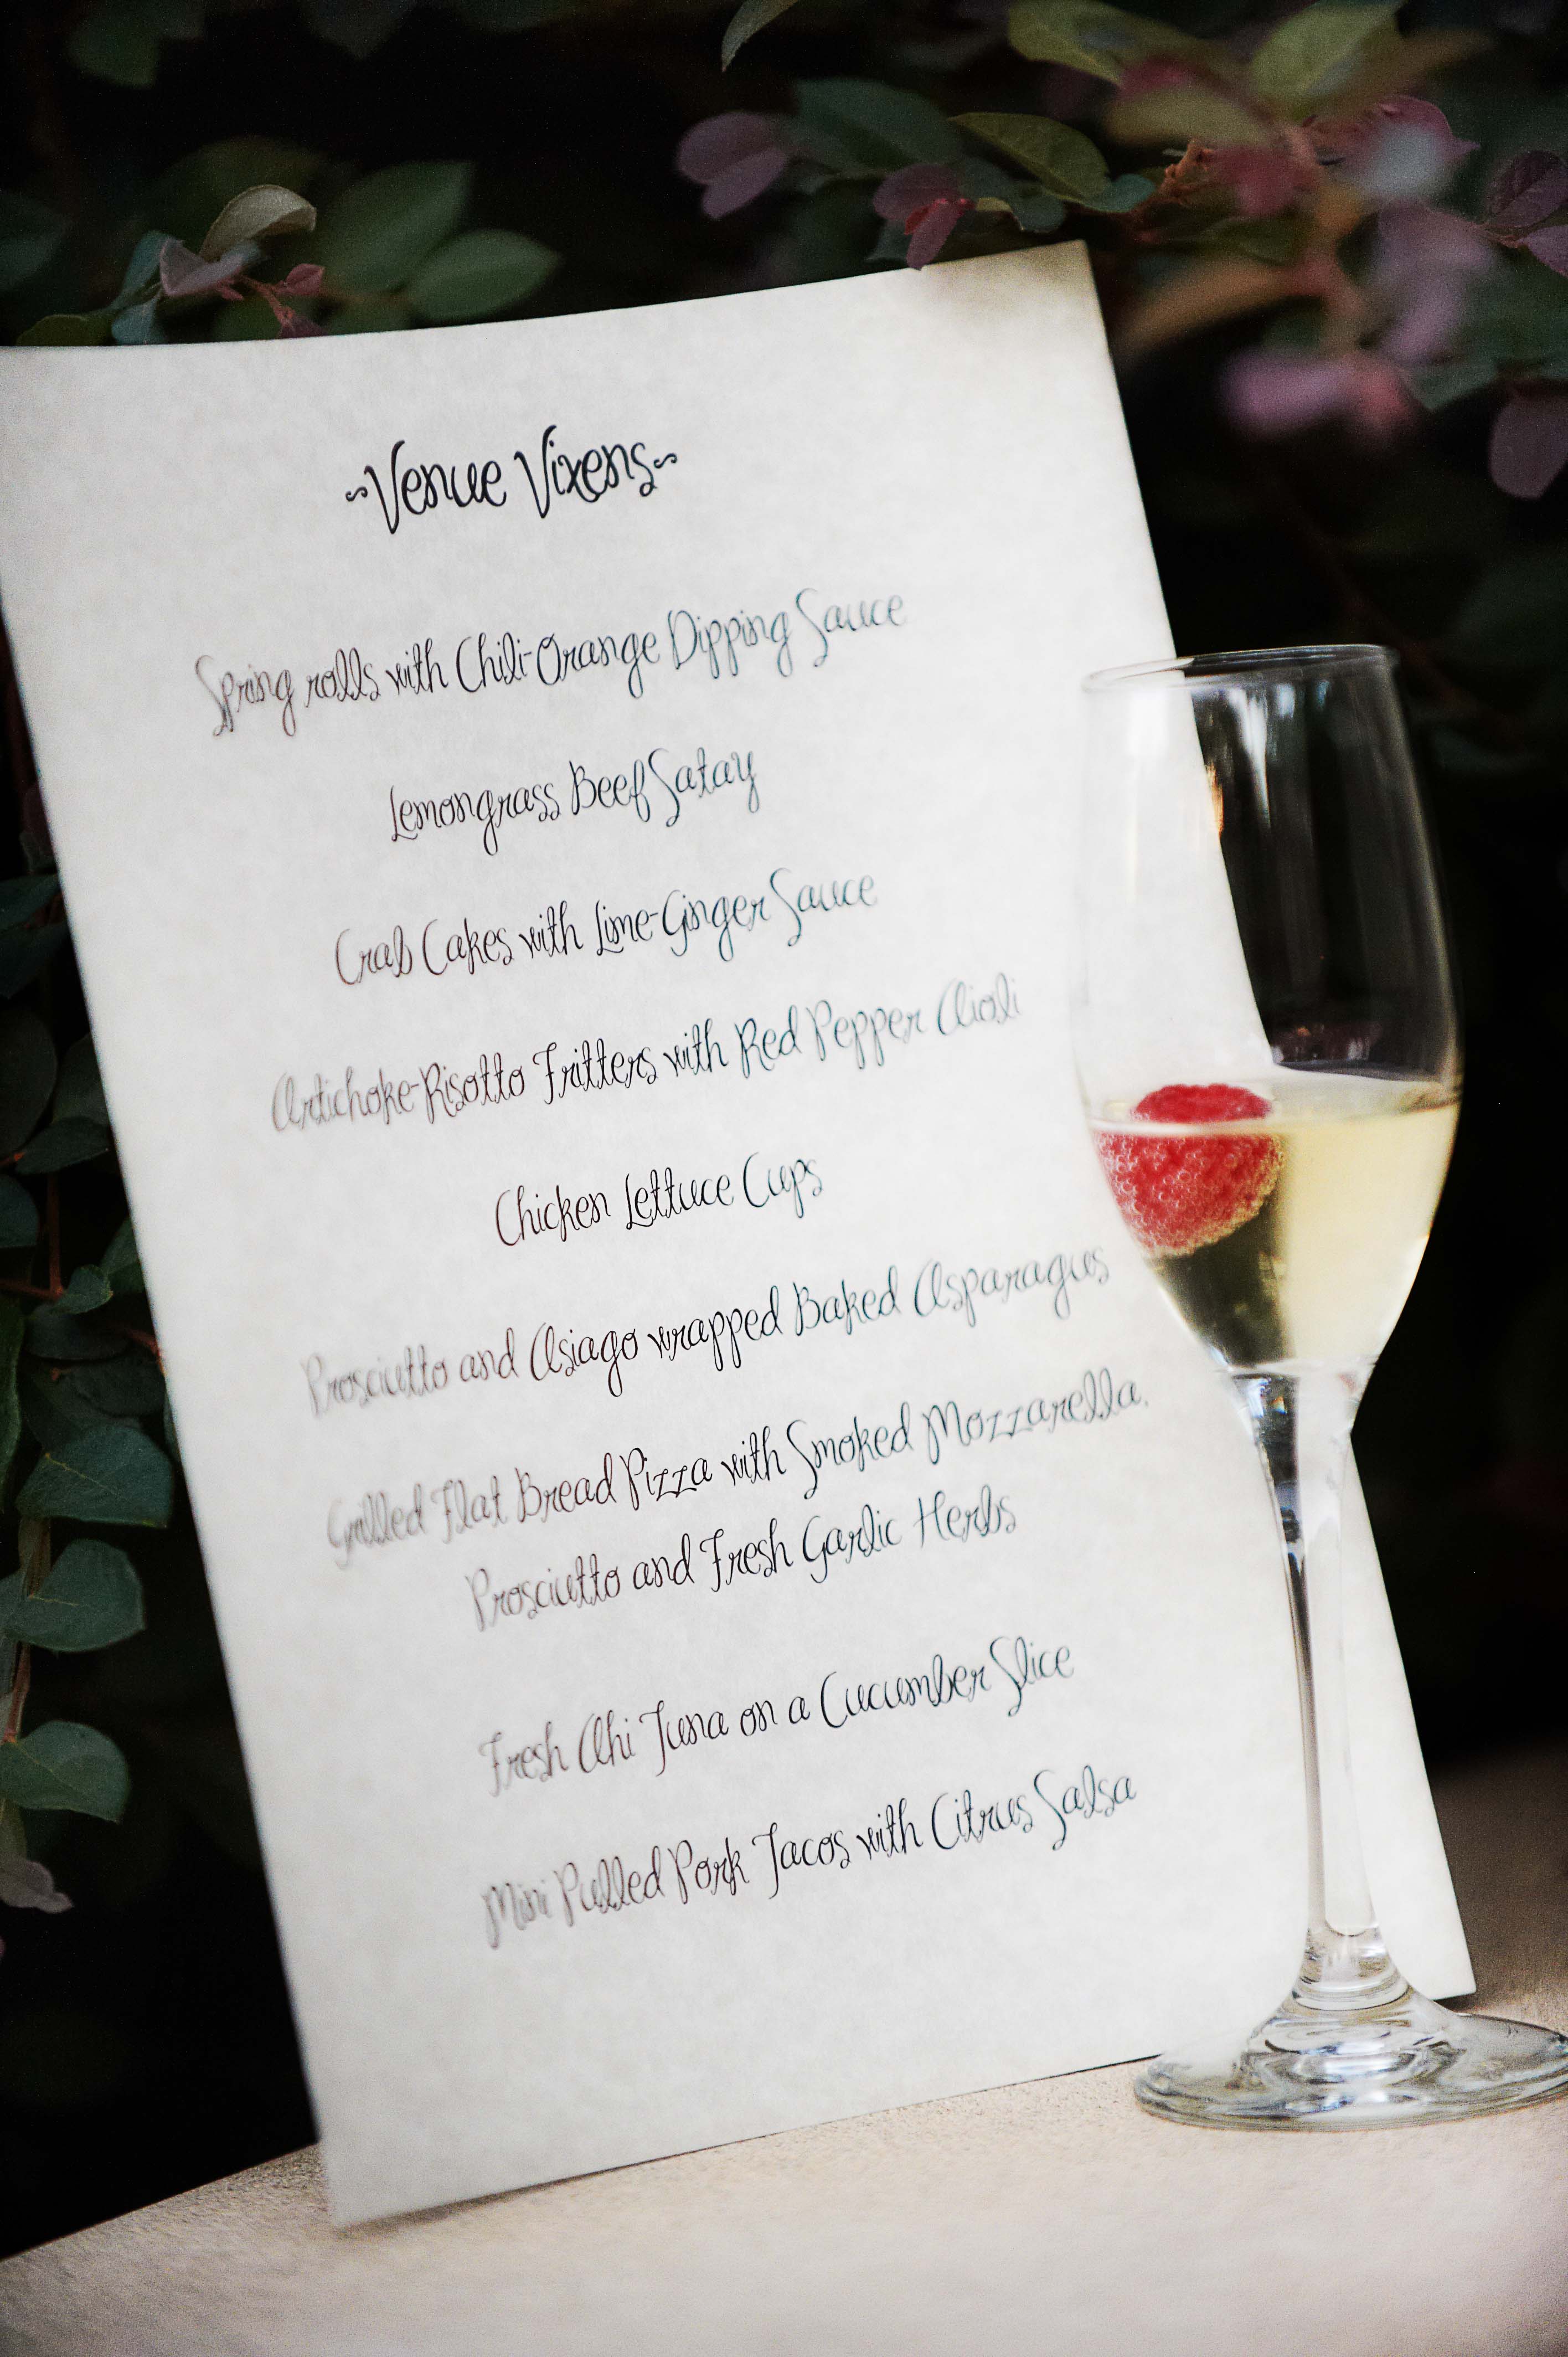 ~Venue Vixens~
Spring rolls with Chili-Orange Dipping Sauce
Lemongrass Beef Satay
Crab Cakes with Lime-Ginger Sauce
Artichoke-Risotto Fritters with Red Pepper Aioli
Chicken Lettuce Cups
Prosciutto and Asiago wrapped Baked Asparagus
Grilled Flat Bread Pizza with Smoked Mozzarella,
Prosciutto and Fresh Garlic Herbs
Fresh Ahi Tuna on a Cucumber Slice
Mini Pulled Pork Tacos with Citrus Salsa